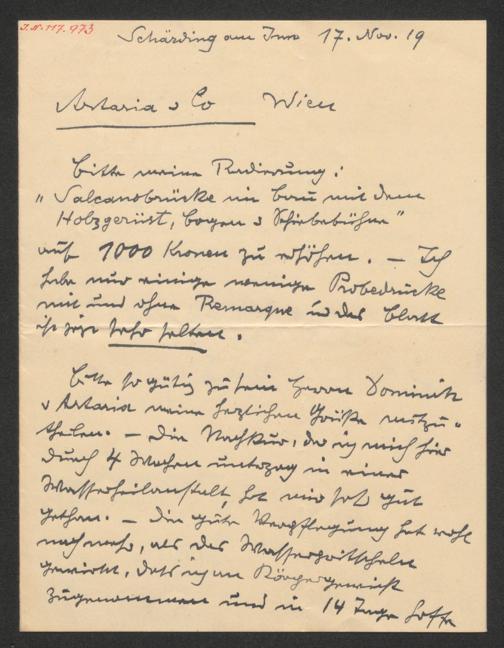 J.N. 117.973
Schärding am Inn 17. Nov. 19
Artaria & Co Wien
bitte meine Radierung:
"Salcanobrücke im bau mit dem
Holzgerüst, bogen & Schiebebühne"
auf 1000 Kronen zu erhöhen. – Ich
habe nur einige wenige Probedrucke
mit und ohne Remarque u das blatt
ist jezt sehr selten.
bitte so gütig zu sein Herrn Dominik
v Artaria meine herzlichen Grüße mitzu-
theilen. – Die Nachkur, der ich mich hier
durch 4 Wochen unterzog in einer
Wasserheilanstalt, hat mir sehr gut
gethan. – Die gute Verpflegung hat wohl
noch mehr, als das Wasserpritscheln
gewirkt, daß ich an Körpergewicht
zugenommen und in 14 Tage hoffe